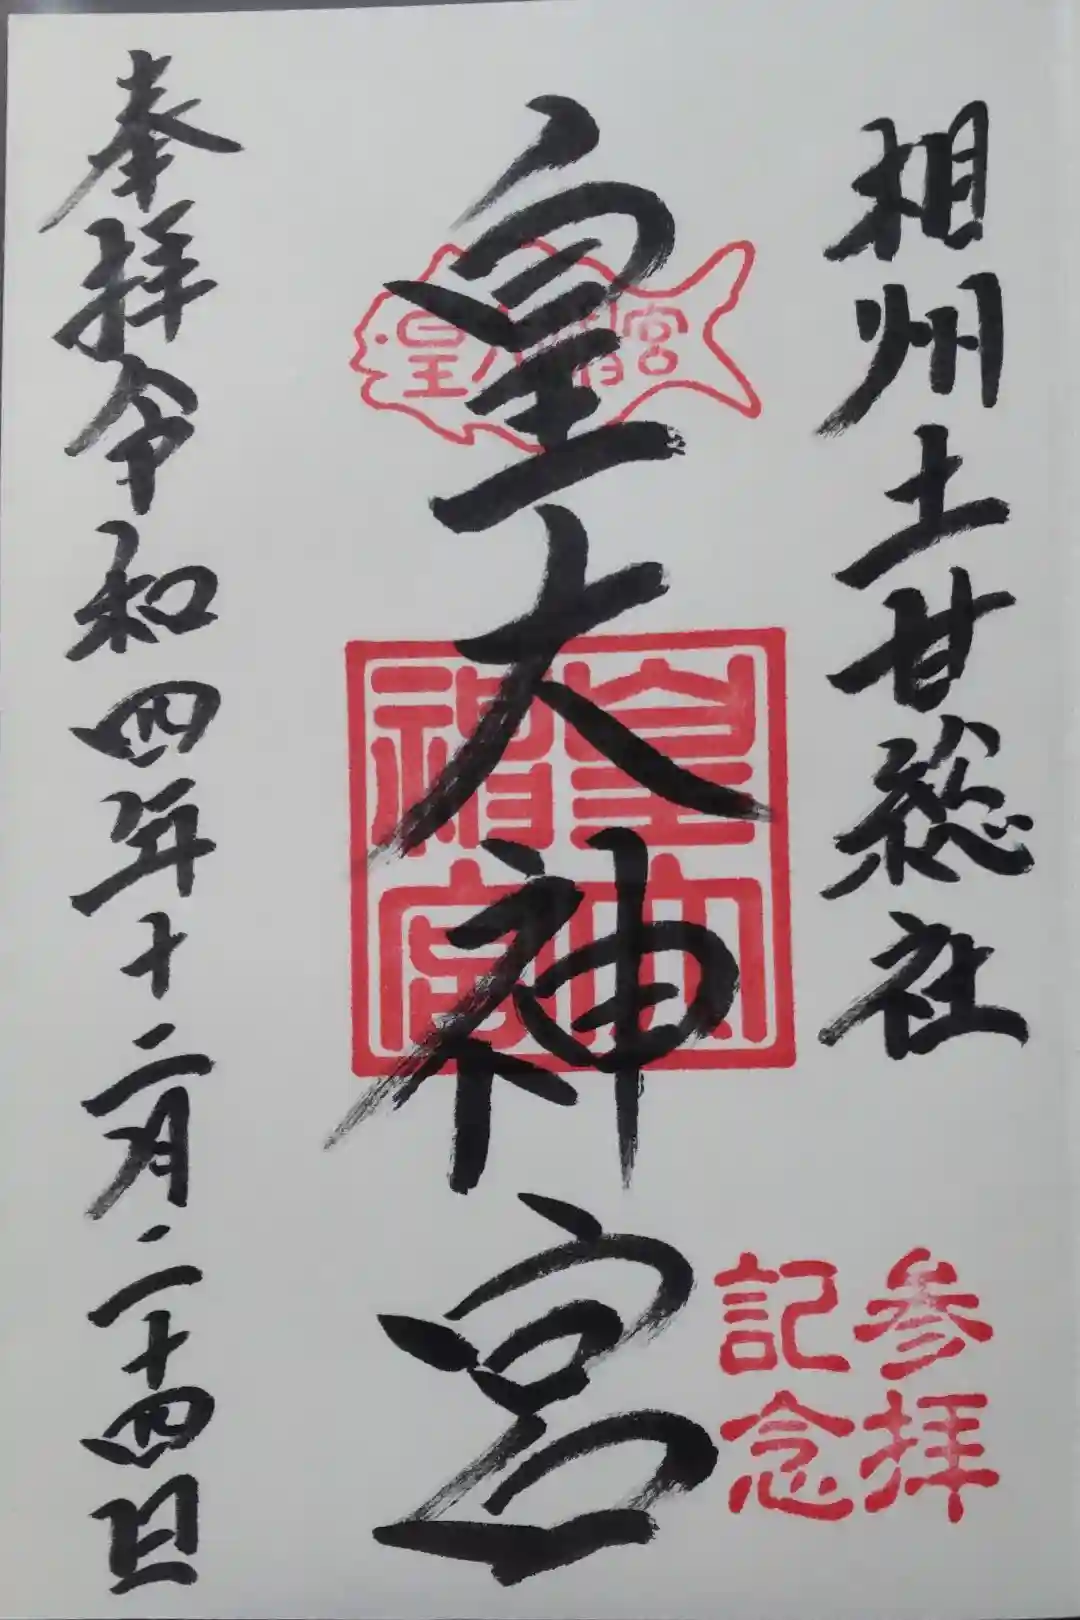 相州土甘総社
皇大神宮
奉拝令和四年十二月二十四日
皇大神宮
皇大
神宮
参拝
記念